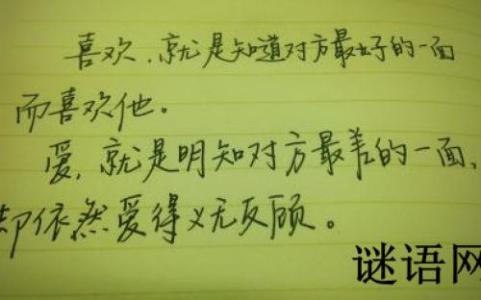 喜欢，就是知道对方最好的一面
而喜欢他。
爱，就是明知对方最差的一面、
却依然爱得义无反顾。
谜语网